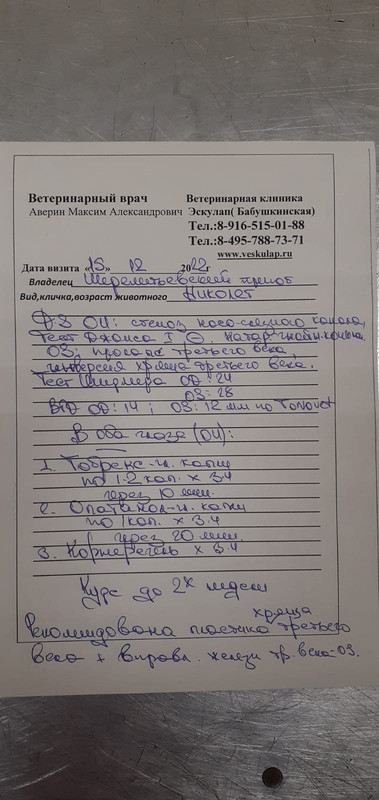 Ветеринарный врач
Аверин Максим Александрович
Ветеринарная клиника
Эскулап( Бабушкинская)
Тел.:8-916-515-01-88
Тел.:8-495-788-73-71
www.veskulap.ru
Дата визита «15» 12 2022г
Владелец Шереметьевский приют
Вид,кличка,возраст животного Николет
DS OU: стеноз носо-слезного канала,
Тест Джонса I ⊖. Катар. гнойн. конъюн.
OS, пролапс третьего века,
инверсия хряща третьего века.
Тест Ширмера OD: 24
OS: 28
ВГД OD: 14; OS: 12 мм по Tonovet
В оба глаза (OU):
1. Тобрекс-гл. капли
по 1-2 кап. х 3.4
через 10 мин.
2. Опатанол-гл. капли
по 1 кап. х 3.4
через 20 мин.
3. Корнерегель х 3.4
Курс до 2х недель
Рекомендована пластика хряща третьего
века + вправл. железы тр. века-OS.